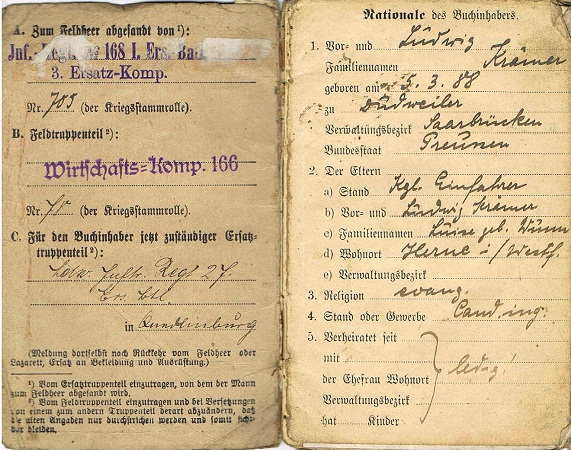 A. Zum Feldheer abgesandt von ¹):
Inf. Regt. Nr 168 I. Ers. Bat.
3. Ersatz-Komp.
Nr. 703 (der Kriegsstammrolle).
B. Feldtruppenteil ²):
Wirtschafts-Komp. 166
Nr. 70 (der Kriegsstammrolle).
C. Für den Buchinhaber jetzt zuständiger Ersatz-
truppenteil ²):
Ldw. Inftr. Regt 27.
Ers. Btl.
in Quedlinburg
(Meldung dortselbst nach Rückkehr vom Feldheer oder
Lazarett, Ersatz an Bekleidung und Ausrüstung.)
¹) Vom Ersatztruppenteil einzutragen, von dem der Mann
zum Feldheer abgesandt wird.
²) Vom Feldtruppenteil einzutragen und bei Versetzungen
von einem zum andern Truppenteil derart abzuändern, daß
die alten Angaben nur durchstrichen werden und somit
bleiben.
Nationale des Buchinhabers.
1. Vor- und Ludwig
Familiennamen Krämer
geboren am 5. 3. 88
zu Dudweiler
Verwaltungsbezirk Saarbrücken
Bundesstaat Preussen
2. Der Eltern
a) Stand Kgl. Einfahrer
b) Vor- und Ludwig Krämer
c) Familiennamen Luise geb.
d) Wohnort Herne i/Westf.
e) Verwaltungsbezirk
3. Religion evang.
4. Stand oder Gewerbe Cand. ing.
5. Verheiratet seit
mit
der Ehefrau Wohnort ledig
Verwaltungsbezirk
hat Kinder